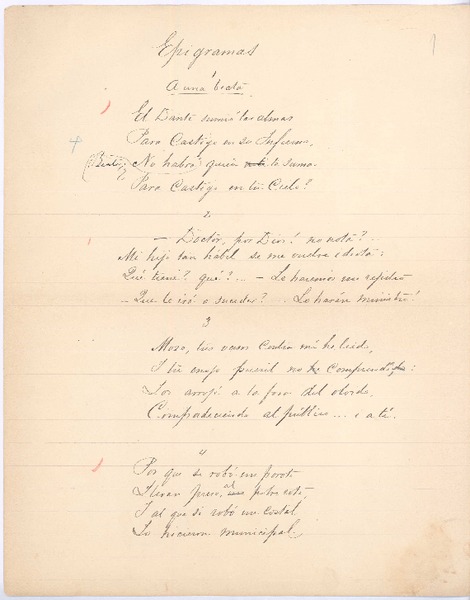 Epigramas
1
A una beata
El Dante sumió las almas
Para Castigo en su Infierno,
No habrá quien te suma
Para Castigo en tu Cielo?
2
— Doctor, por Dios! no nota?...
Mi hijo tan hábil se me vuelve idiota:
Qué tiene? qué?... — Lo haremos un rejistro
— Que le irá a suceder?... Lo harán ministro!
3
Mozo, tus versos contra mí he leido,
I tu enojo pueril no he comprendido:
Los arrojé a la fosa del olvido,
Compadeciendo al público... i a tí.
4
Por que se robó un poroto
Llevan preso, al pobre roto,
I al que se robó un costal
Lo hicieron municipal